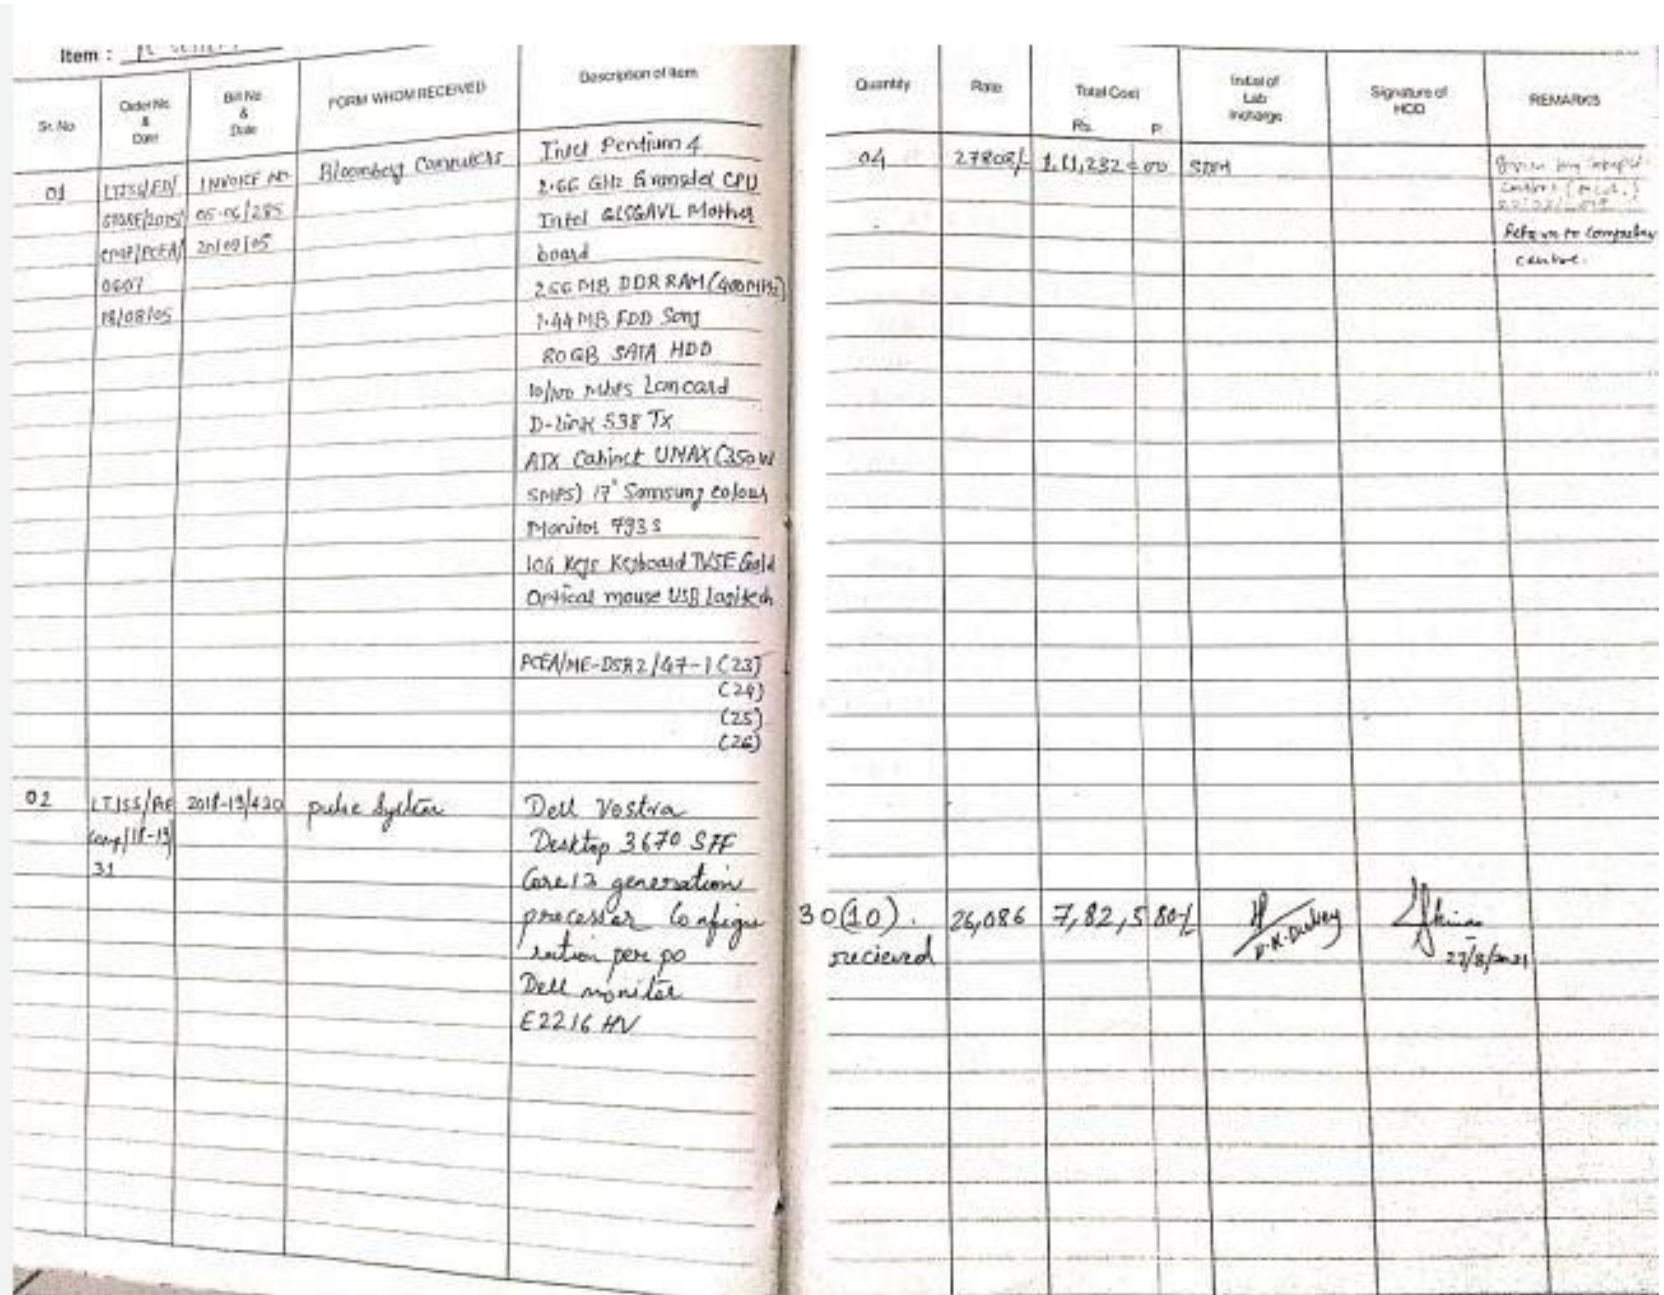 Item :
Sr. No
Order No. & Date
Bill No & Date
FORM WHOM RECEIVED
Description of Item
Quantity
Rate
Total Cost
Rs. P.
Initial of Lab Incharge
Signature of HOD
REMARKS
01
LTJSS/ED/
STORE/2005/
/PCEA/
0607
18/08/05
INVOICE NO.
05-06/285
20/09/05
Bloomberg Computers
Intel Pentium 4
2.66 GHz CPU
Intel Mother
board
256 MB DDR RAM (400MHz)
1.44 MB FDD Sony
80GB SATA HDD
10/100 Mbps Lancard
D-Link 538 TX
ATX Cabinet UMAX (350W
SMPS) 17" Samsung colour
Monitor 793 S
104 Keys Keyboard TVSE Gold
Optical mouse USB Logitech
PCEA/ME-DSR2/47-1 (23)
(24)
(25)
(26)
04
27808/-
1,11,232=00
Return to Computer
centre.
02
LTJSS/PCE
Comp/18-19
31
2018-19/420
pulse System
Dell Vostra
Desktop 3670 SFF
Core i3 generation
processor Configu
ration per po
Dell monitor
E2216 HV
30(10).
recieved
26,086
7,82,580/-
D.K. Dubey
27/8/2021